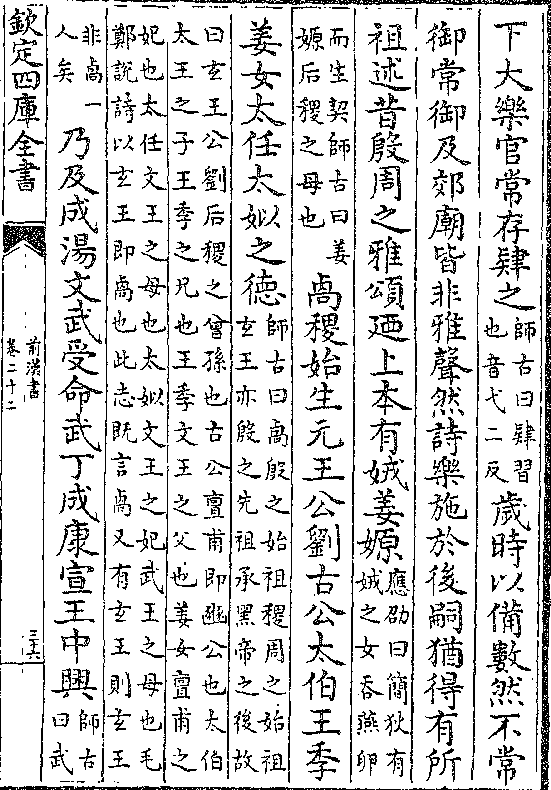 下大樂官常存肄之師古曰肄習
也音弋二反歲時以備數然不常
御常御及郊廟皆非雅聲然詩樂施於後嗣猶得有所
祖述昔殷周之雅頌廼上本有娀姜嫄應劭曰簡狄有
娀之女吞燕卵
而生契師古曰姜
嫄后稷之母也卨稷始生元王公劉古公太伯王季
姜女太任太姒之德師古曰卨殷之始祖稷周之始祖
玄王亦殷之先祖承黑帝之後故
曰玄王公劉后稷之曾孫也古公亶甫即豳公也太伯
太王之子王季之兄也王季文王之父也姜女亶甫之
妃也太任文王之母也太姒文王之妃武王之母也毛
鄭說詩以玄王即卨也此志既言卨又有玄王則玄王
非卨一
人矣乃及成湯文武受命武丁成康宣王中興師古
曰武
欽定四庫全書
前漢書
卷二十二
三六